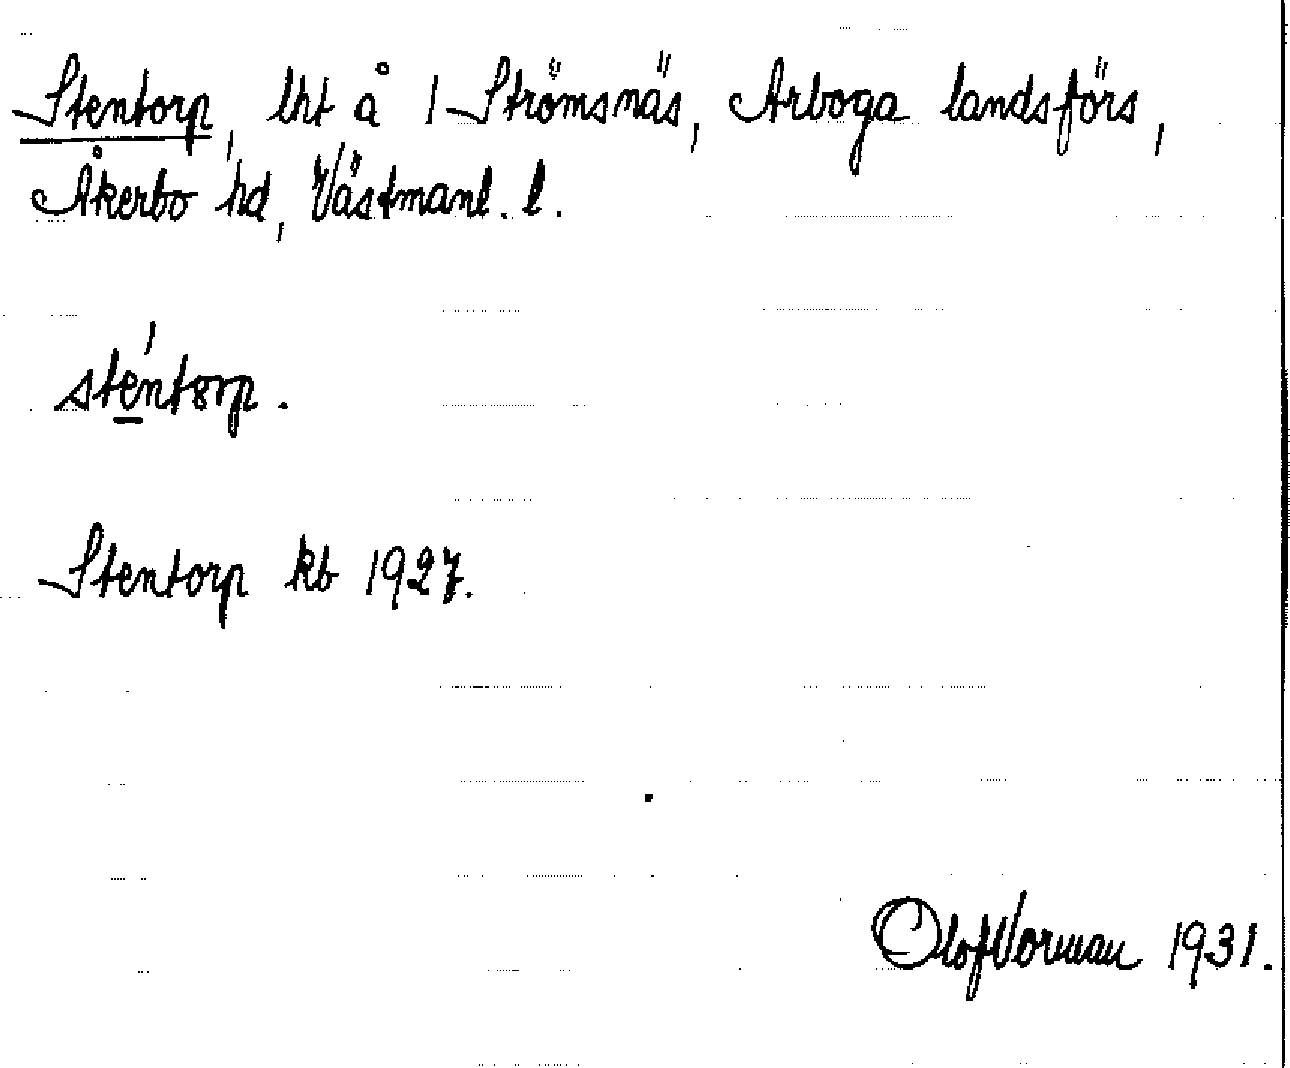 Stentorp, lht å 1 Strömsnäs, Arboga landsförs,
Åkerbo hd, Västmanl. l.
sténtorp.
Stentorp kb 1927.
Olof Vorman 1931.